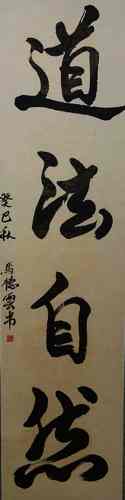 道法自然
癸巳秋 马德云书